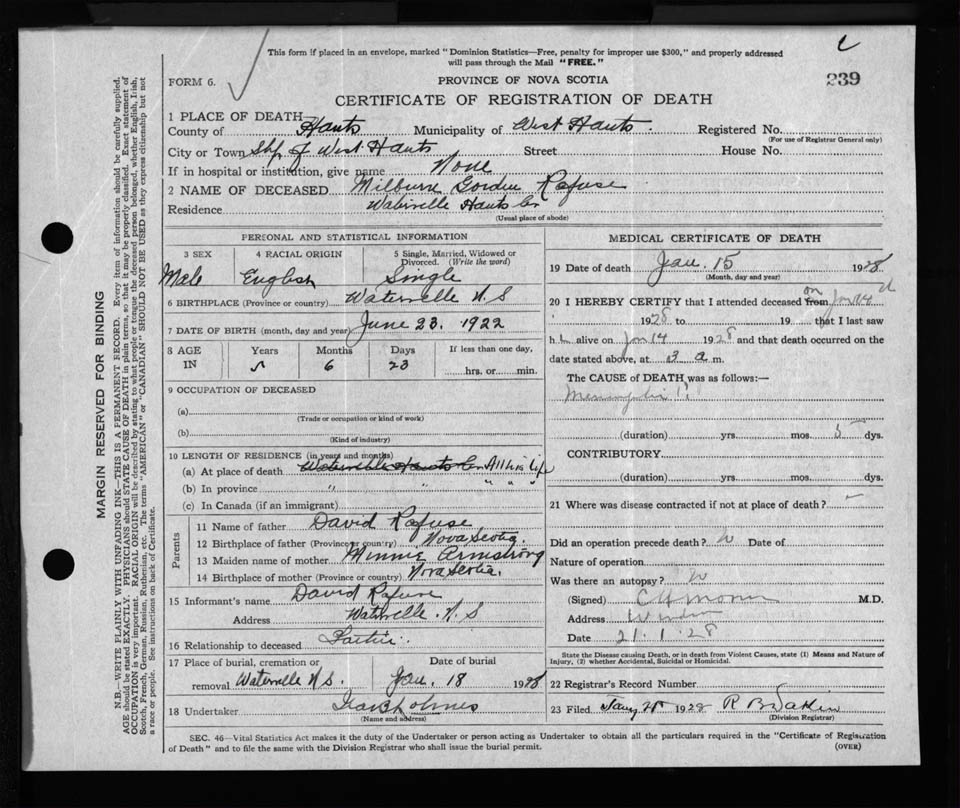 This form if placed in an envelope, marked "Dominion Statistics—Free, penalty for improper use $300," and properly addressed
will pass through the Mail "FREE."
239
FORM 6.
PROVINCE OF NOVA SCOTIA
CERTIFICATE OF REGISTRATION OF DEATH
1 PLACE OF DEATH—
County of Hants Municipality of West Hants. Registered No.
(For use of Registrar General only)
City or Town Shp of West Hants Street House No.
If in hospital or institution, give name None
2 NAME OF DECEASED Milburne Gorden Rafuse
Residence Waterville Hants Co
(Usual place of abode)
PERSONAL AND STATISTICAL INFORMATION
3 SEX 4 RACIAL ORIGIN 5 Single, Married, Widowed or
Divorced. (Write the word)
Male English Single
6 BIRTHPLACE (Province or country) Waterville N.S
7 DATE OF BIRTH (month, day and year) June 23. 1922
8 AGE Years Months Days If less than one day,
IN 5 6 23 hrs. or min.
9 OCCUPATION OF DECEASED
(a)
(Trade or occupation or kind of work)
(b)
(Kind of industry)
10 LENGTH OF RESIDENCE (in years and months)
(a) At place of death Waterville Hants Co All his life
(b) In province " " " " "
(c) In Canada (if an immigrant)
Parents
11 Name of father David Rafuse
12 Birthplace of father (Province or country) Nova Scotia.
13 Maiden name of mother Minnie Armstrong
14 Birthplace of mother (Province or country) Nova Scotia.
15 Informant's name David Rafuse
Address Waterville. N.S
16 Relationship to deceased Father.
17 Place of burial, cremation or Date of burial
removal Waterville N.S. Jan. 18 1928
18 Undertaker Holmes
(Name and address)
MEDICAL CERTIFICATE OF DEATH
19 Date of death Jan. 15 1928
(Month, day and year)
20 I HEREBY CERTIFY that I attended deceased from on Jan 14
1928 to 19 that I last saw
h alive on Jan 14 1928 and that death occurred on the
date stated above, at 3 a m.
The CAUSE of DEATH was as follows:—
Meningitis
(duration) yrs. mos. 5 dys.
CONTRIBUTORY
(duration) yrs. mos. dys.
21 Where was disease contracted if not at place of death?
Did an operation precede death? Date of
Nature of operation
Was there an autopsy?
(Signed) M.D.
Address Windsor
Date 21.1.28
State the Disease causing Death, or in death from Violent Causes, state (1) Means and Nature of
Injury, (2) whether Accidental, Suicidal or Homicidal.
22 Registrar's Record Number
23 Filed 1928
(Division Registrar)
SEC. 46—Vital Statistics Act makes it the duty of the Undertaker or person acting as Undertaker to obtain all the particulars required in the "Certificate of Registration
of Death" and to file the same with the Division Registrar who shall issue the burial permit. (OVER)
MARGIN RESERVED FOR BINDING
N.B.—WRITE PLAINLY WITH UNFADING INK—THIS IS A PERMANENT RECORD. Every item of information should be carefully supplied.
AGE should be stated EXACTLY. PHYSICIANS should STATE CAUSE OF DEATH in plain terms, so that it may be properly classified. Exact statement of
OCCUPATION is very important. RACIAL ORIGIN will be described by stating to what people or tongue the deceased person belonged, whether English, Irish,
Scotch, French, German, Russian, Ruthenian, etc. The terms "AMERICAN" or "CANADIAN" SHOULD NOT BE USED as they express citizenship but not
a race or people. See instructions on back of Certificate.